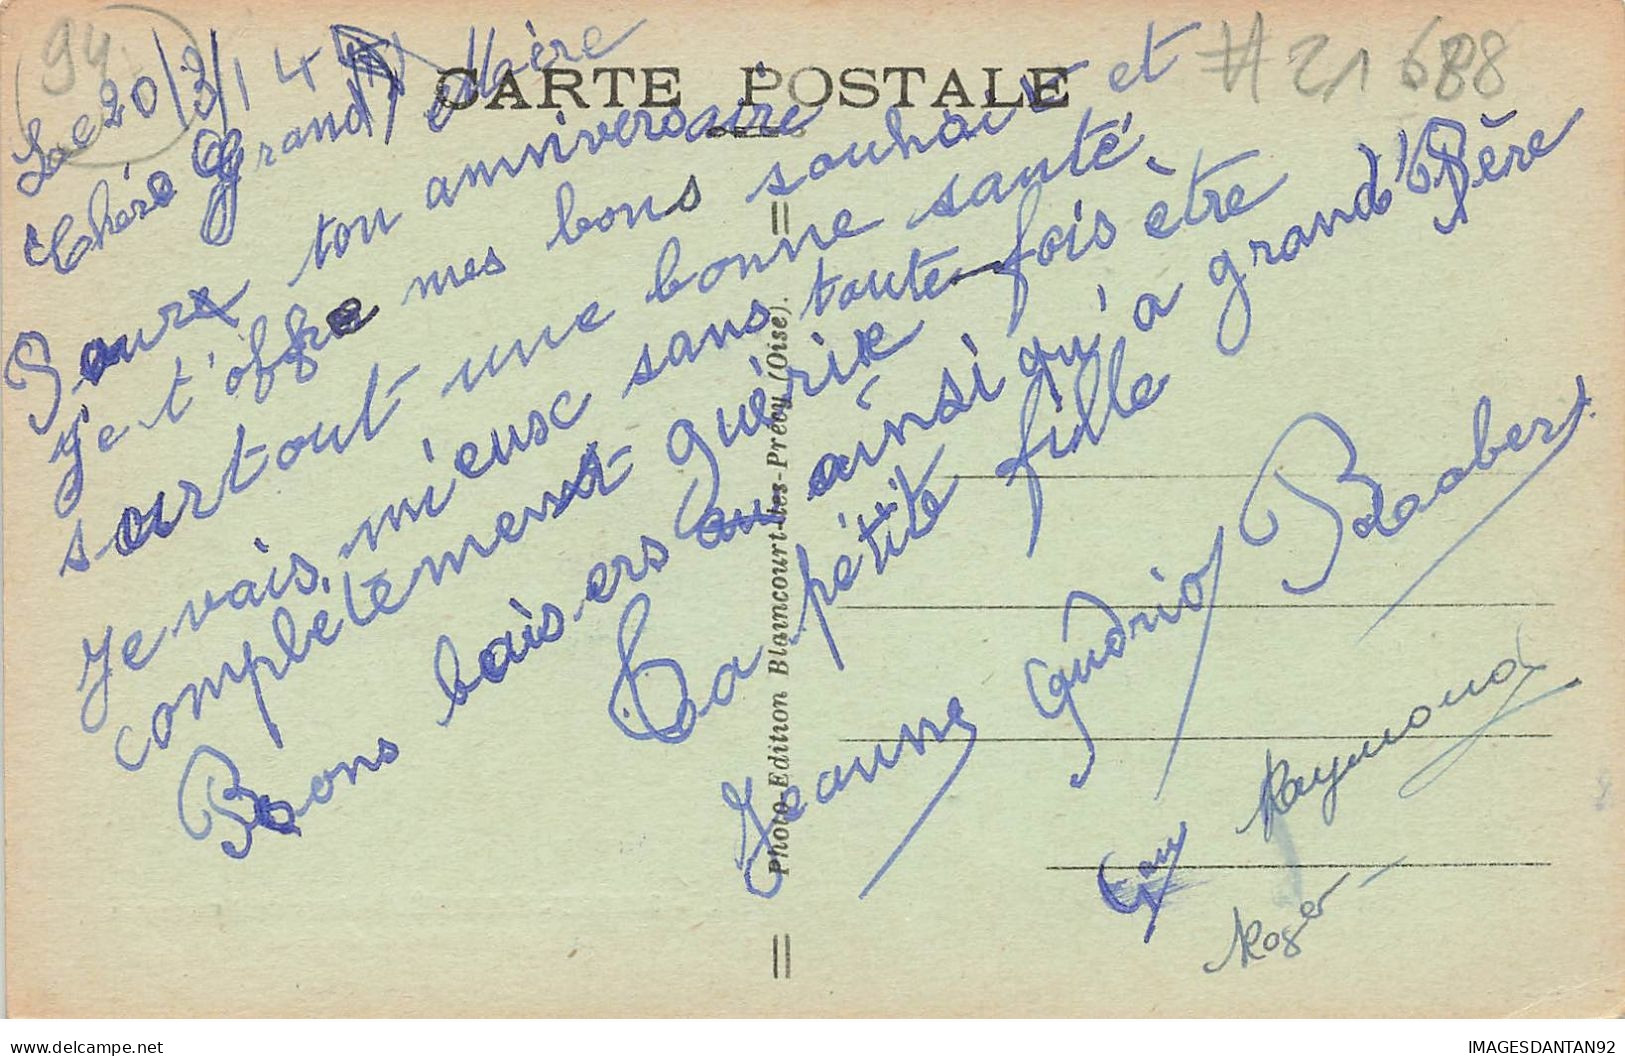 94
CARTE POSTALE
# 21 688
Le 20/3/14
Chère Grand' Mère
Pour ton anniversaire
Je t'offre mes bons souhait et
surtout une bonne santé.
Je vais mieux sans toute-fois être
complètement guérie
Bons baisers au ainsi qu'a grand' Père
Ta pétite fille
Jeanne Robert
Guy Raymond
Roger
Photo-Edition Blaincourt-les-Précy (Oise).
IMAGESDANTAN92
delcampe.net